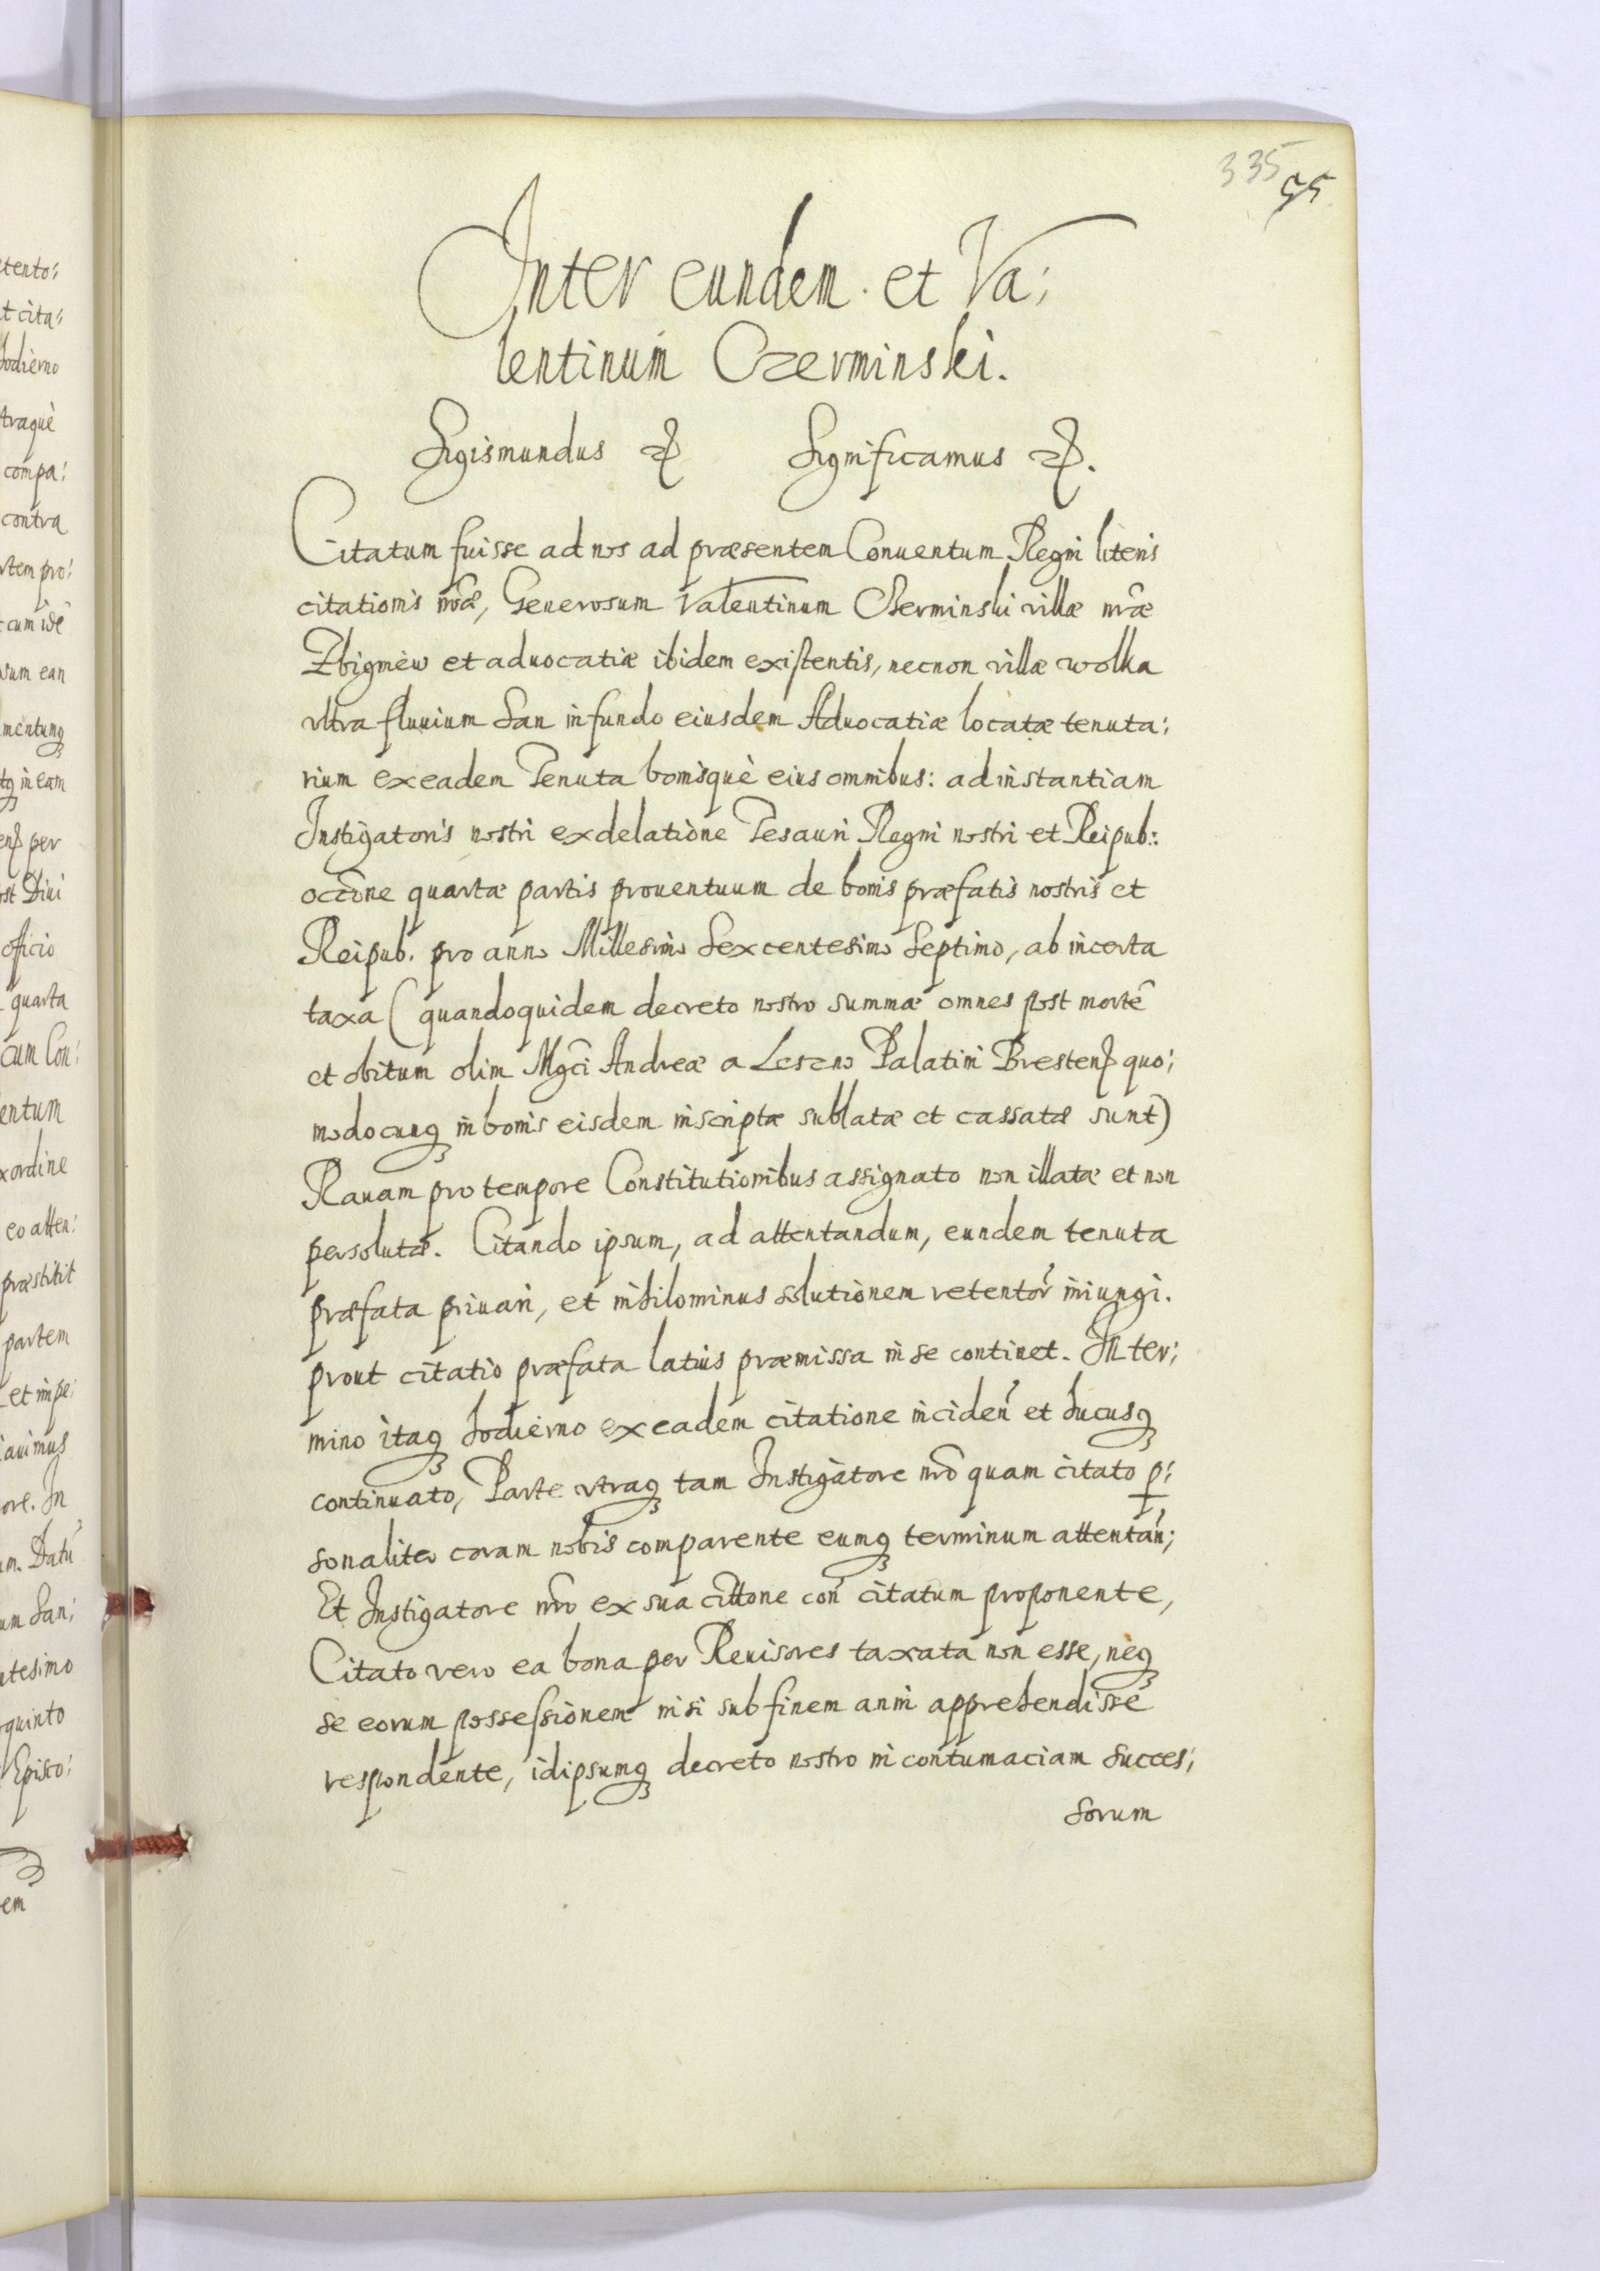 335
55
Inter eundem et Va:
lentinum Czerminski.
Sigismundus etc Significamus etc.
Citatum fuisse ad nos ad præsentem Conuentum Regni literis
citationis nr̃æ, Generosum Valentinum Czerminski villæ nr̃æ
Zbigniew et aduocatiæ ibidem existentis, necnon villæ wolka
vltra fluuium San in fundo eiusdem Aduocatiæ locatæ tenuta:
rium ex eadem Tenuta bonisquè eius omnibus: ad instantiam
Instigatoris nostri ex delatione Tesauri Regni nostri et Reipub:.
occōne quartæ partis prouentuum de bonis præfatis nostris et
Reipub. pro anno Millesimo Sexcentesimo Septimo, ab incerta
taxa ( quandoquidem decreto nostro summæ omnes post mortē
et obitum olim Mgci Andreæ a Leszno Palatini Bresten̄ quo:
modocunq in bonis eisdem inscriptæ sublatæ et cassatæ sunt)
Rauam pro tempore Constitutionibus assignato non illatæ et non
persolutæ. Citando ipsum, ad attentandum, eundem tenuta
præfata priuari, et nihilominus solutionem retentor̃ iniungi.
prout citatio præfata latius præmissa in se continet. In ter:
mino itaq hodierno ex eadem citatione inciden̄ et hucusq
continuato, Parte vtraq tam Instigatore nr̃o quam citato p:
sonaliter coram nobis comparente eumq terminum attentan̄;
Et Instigatore nr̃o ex sua cittōne con̄ citatum proponente,
Citato vero ea bona per Reuisores taxata non esse, neq
se eorum possessionem nisi sub finem anni apprehendisse
respondente, idipsumq decreto nostro in contumaciam Succes:
sorum